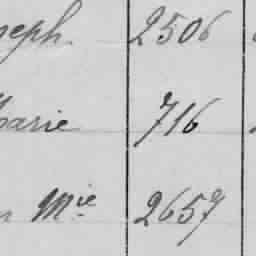 seph 2506
Marie 716
Mie 2657